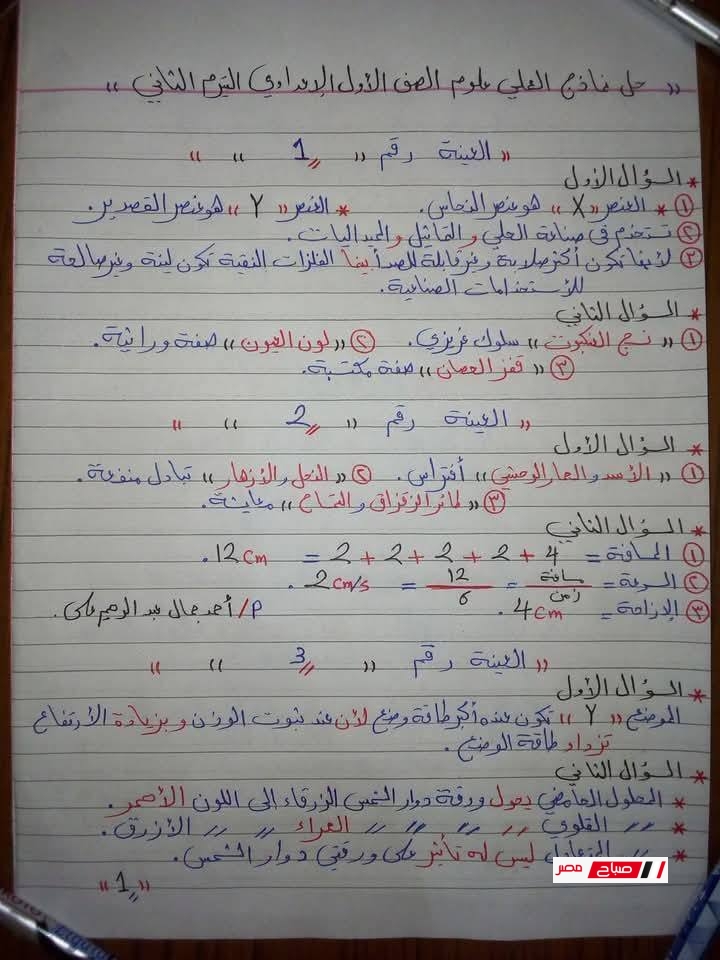 « حل نماذج العملي علوم الصف الأول الإعدادي الترم الثاني »
« العينة رقم « 1 » »
* السؤال الأول
① * العنصر « X » هو عنصر النحاس. * العنصر « Y » هو عنصر القصدير.
② تستخدم فى صناعة الحلي و التماثيل و الميداليات.
③ لأنها تكون أكثر صلابة وغير قابلة للصدأ بينما الفلزات النقية تكون لينة وغير صالحة
للأستخدامات الصناعية.
* السؤال الثاني
① « نسج العنكبوت » سلوك غريزي. ② « لون العيون » صفة وراثية.
③ « قفز الحصان » صفة مكتسبة.
« العينة رقم « 2 » »
* السؤال الأول
① « الأسد و الحمار الوحشي » أفتراس. ② « النحل والأزهار » تبادل منفعة.
③ « طائر الزقزاق و التمساح » معايشة.
* السؤال الثاني
① المسافة = 4 + 2 + 2 + 2 + 2 = 12 cm.
② السرعة = مسافة/زمن = 12/6 = 2 cm/s.
③ الإزاحة = 4 cm. P/ أحمد جمال عبد الرحيم على.
« العينة رقم « 3 » »
* السؤال الأول
الموضع « Y » تكون عنده أكبر طاقة وضع لأن عند ثبوت الوزن و بزيادة الأرتفاع
تزداد طاقة الوضع.
* السؤال الثاني
* المحلول الحامضي يحول ورقة دوار الشمس الزرقاء إلى اللون الأحمر.
* 〃 القلوي 〃 〃 〃 〃 الحمراء 〃 〃 الأزرق.
* 〃 المتعادل ليس له تأثير على ورقتي دوار الشمس.
« 1 »
صباح مصر